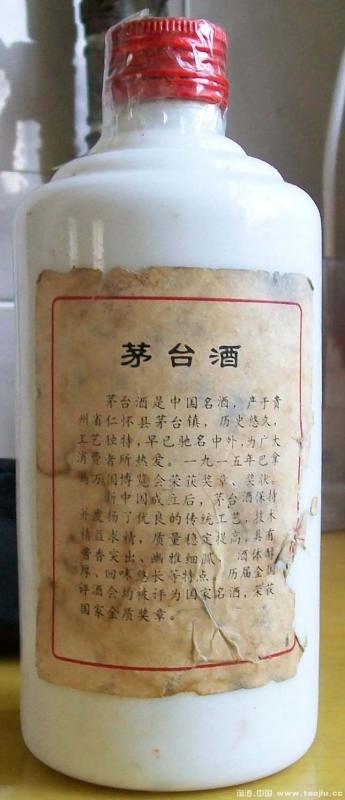 茅台酒
茅台酒是中国名酒，产于贵
州省仁怀县茅台镇，历史悠久，
工艺独特，早已驰名中外，为广大
消费者所热爱。一九一五年巴拿
马万国博览会荣获奖章、奖状。
新中国成立后，茅台酒保持
并发扬了优良的传统工艺，技术
精益求精，质量稳定提高，具有
酱香突出、幽雅细腻、酒体醇
厚、回味悠长等特点，历届全国
评酒会均被评为国家名酒，荣获
国家金质奖章。
淘酒.中国 www.taojiu.cc